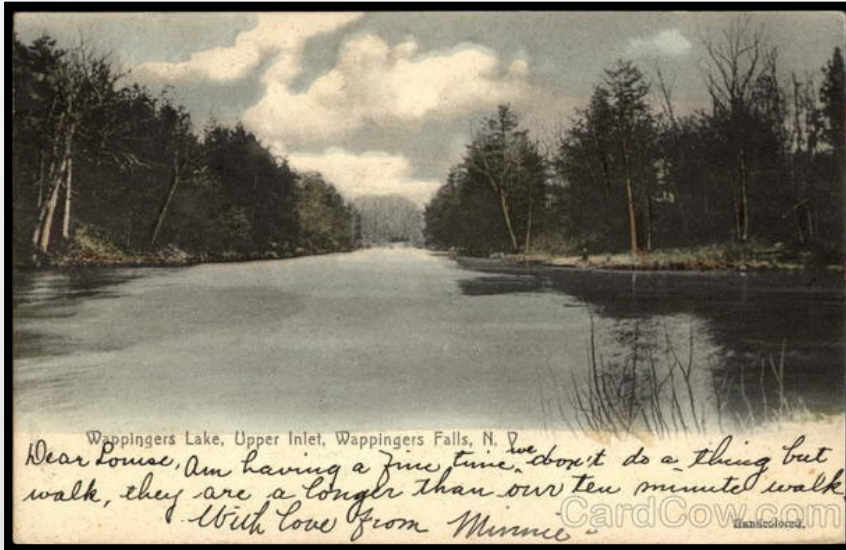 Wappingers Lake, Upper Inlet, Wappingers Falls, N. Y.
Dear Louise, Am having a fine time, we don't do a thing but
walk, they are a longer than our ten minute walk.
With love from Minnie
Handcolored.
CardCow.com